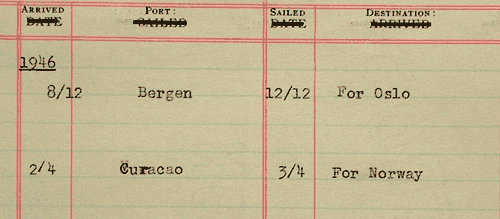 ARRIVED PORT: SAILED DESTINATION:
DATE SAILED DATE ARRIVED
1946
8/12 Bergen 12/12 For Oslo
2/4 Curacao 3/4 For Norway